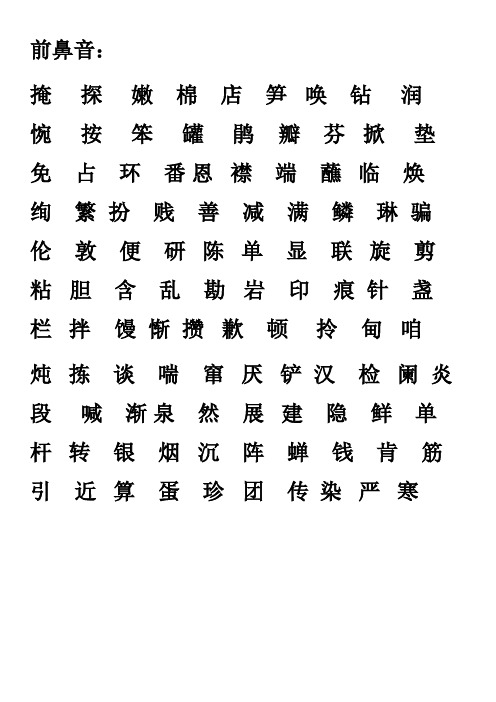 前鼻音：
掩 探 嫩 棉 店 笋 唤 钻 润
惋 按 笨 罐 鹃 瓣 芬 掀 垫
免 占 环 番 恩 襟 端 蘸 临 焕
绚 繁 扮 贱 善 减 满 鳞 琳 骗
伦 敦 便 研 陈 单 显 联 旋 剪
粘 胆 含 乱 勘 岩 印 痕 针 盏
栏 拌 馒 惭 攒 歉 顿 拎 甸 咱
炖 拣 谈 喘 窜 厌 铲 汉 检 阑 炎
段 喊 渐 泉 然 展 建 隐 鲜 单
杆 转 银 烟 沉 阵 蝉 钱 肯 筋
引 近 算 蛋 珍 团 传 染 严 寒